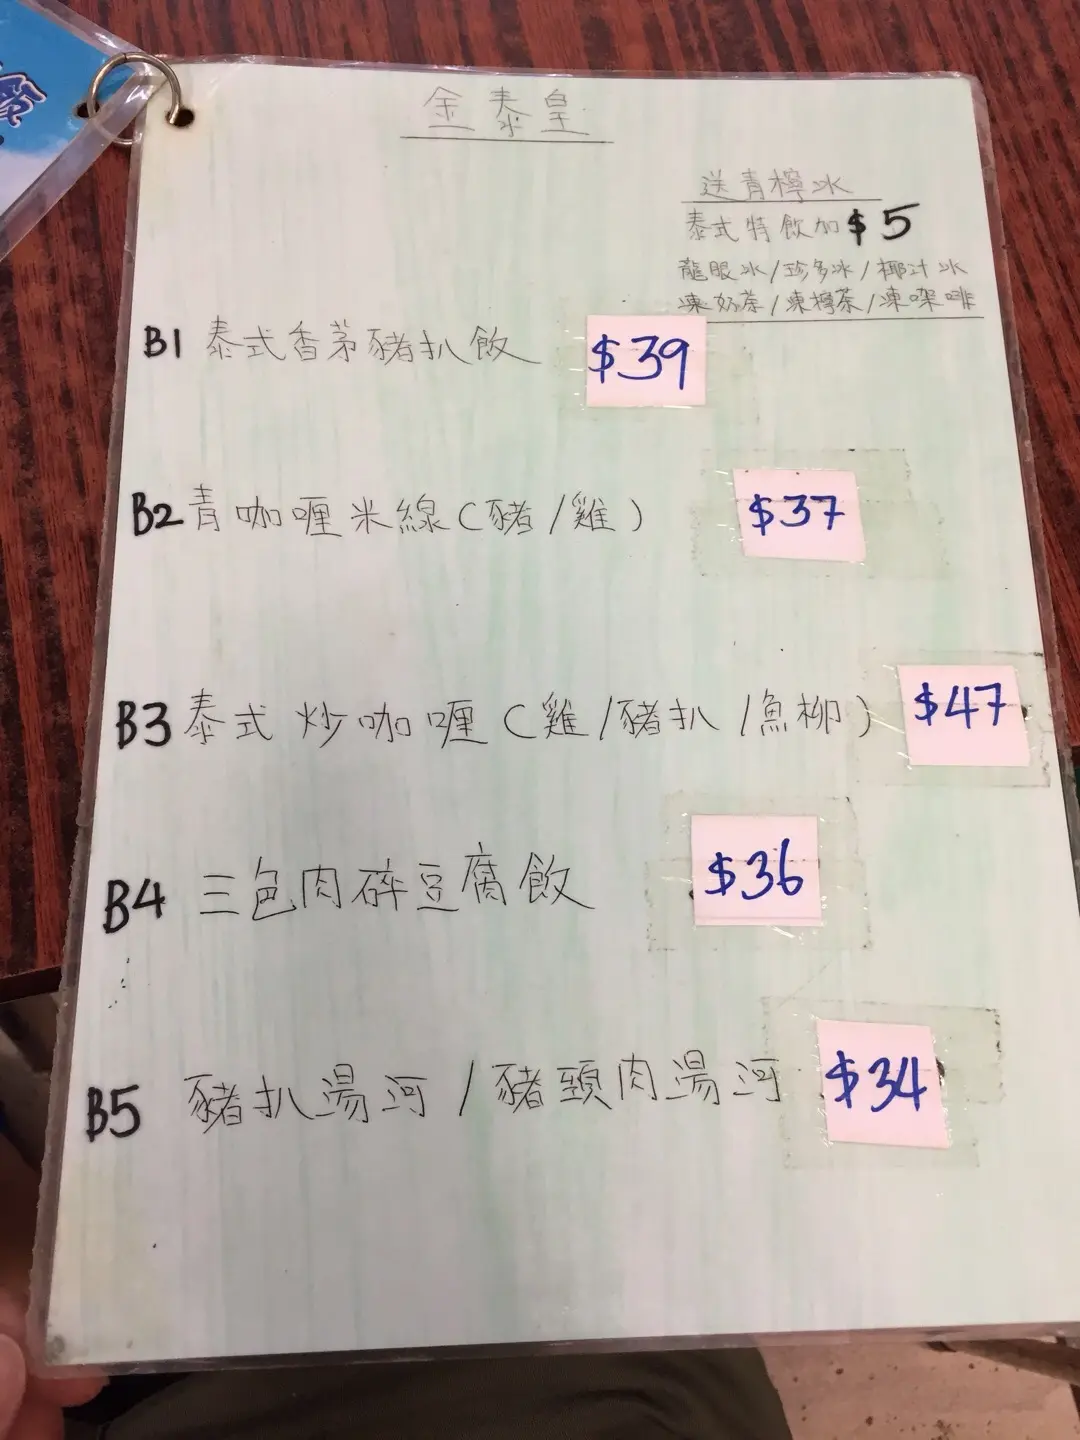 金泰皇
送青檸冰
泰式特飲加$5
龍眼冰/珍多冰/椰汁冰
凍奶茶/凍檸茶/凍咖啡
B1 泰式香茅豬扒飯 $39
B2 青咖喱米線(豬/雞) $37
B3 泰式炒咖喱(雞/豬扒/魚柳) $47
B4 三色肉碎豆腐飯 $36
B5 豬扒湯河/豬頸肉湯河 $34